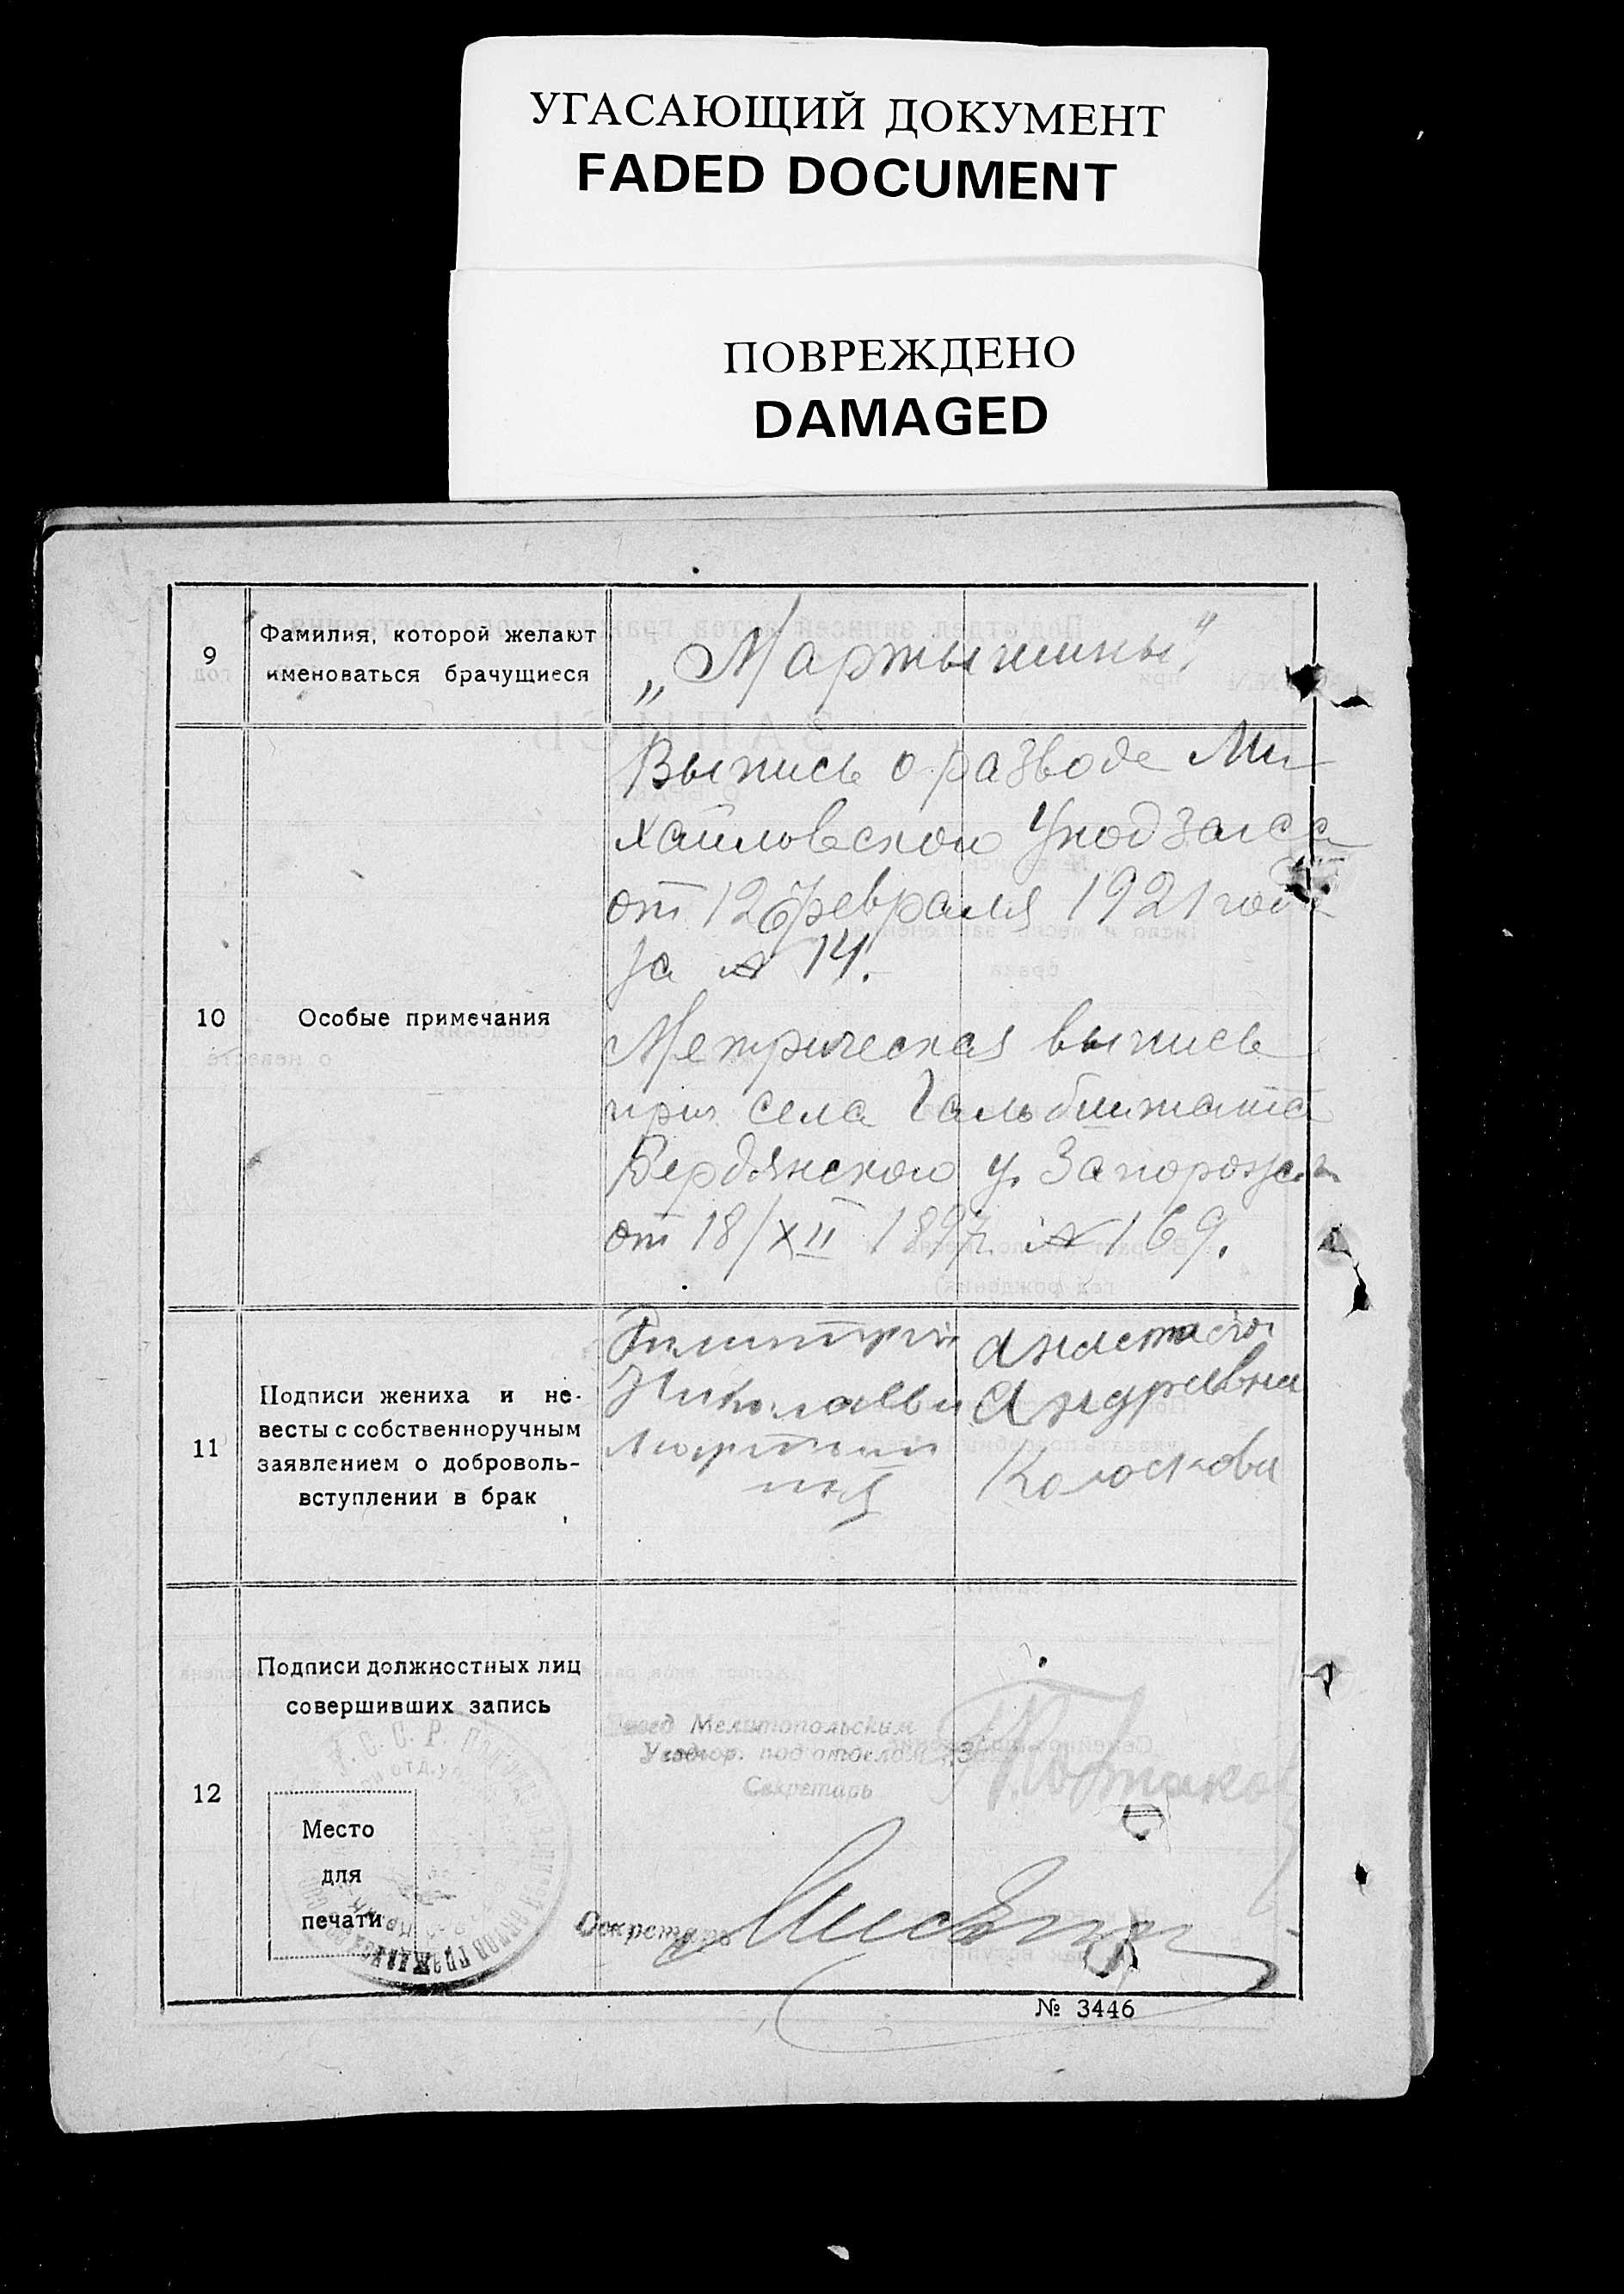 УГАСАЮЩИЙ ДОКУМЕНТ
FADED DOCUMENT
ПОВРЕЖДЕНО
DAMAGED
9
Фамилия, которой желают
именоваться брачущиеся
„Мартынины"
10
Особые примечания
Выпись о разводе Ми
хайловского Уподзагса
от 12 февраля 1921 года
за № 14.
Метрическая выпись
села
Бердянского у. Запорожск
от 18/XII 1897г. № 169.
11
Подписи жениха и не-
весты с собственноручным
заявлением о доброволь-
вступлении в брак
Димитрий
Николаевич
Анастасия
Андреевна
Колоскова
12
Подписи должностных лиц
совершивших запись
Место
для
печати
Завед Мелитопольским
Уездгор. подотделом
Секретарь
Секретарь
№ 3446